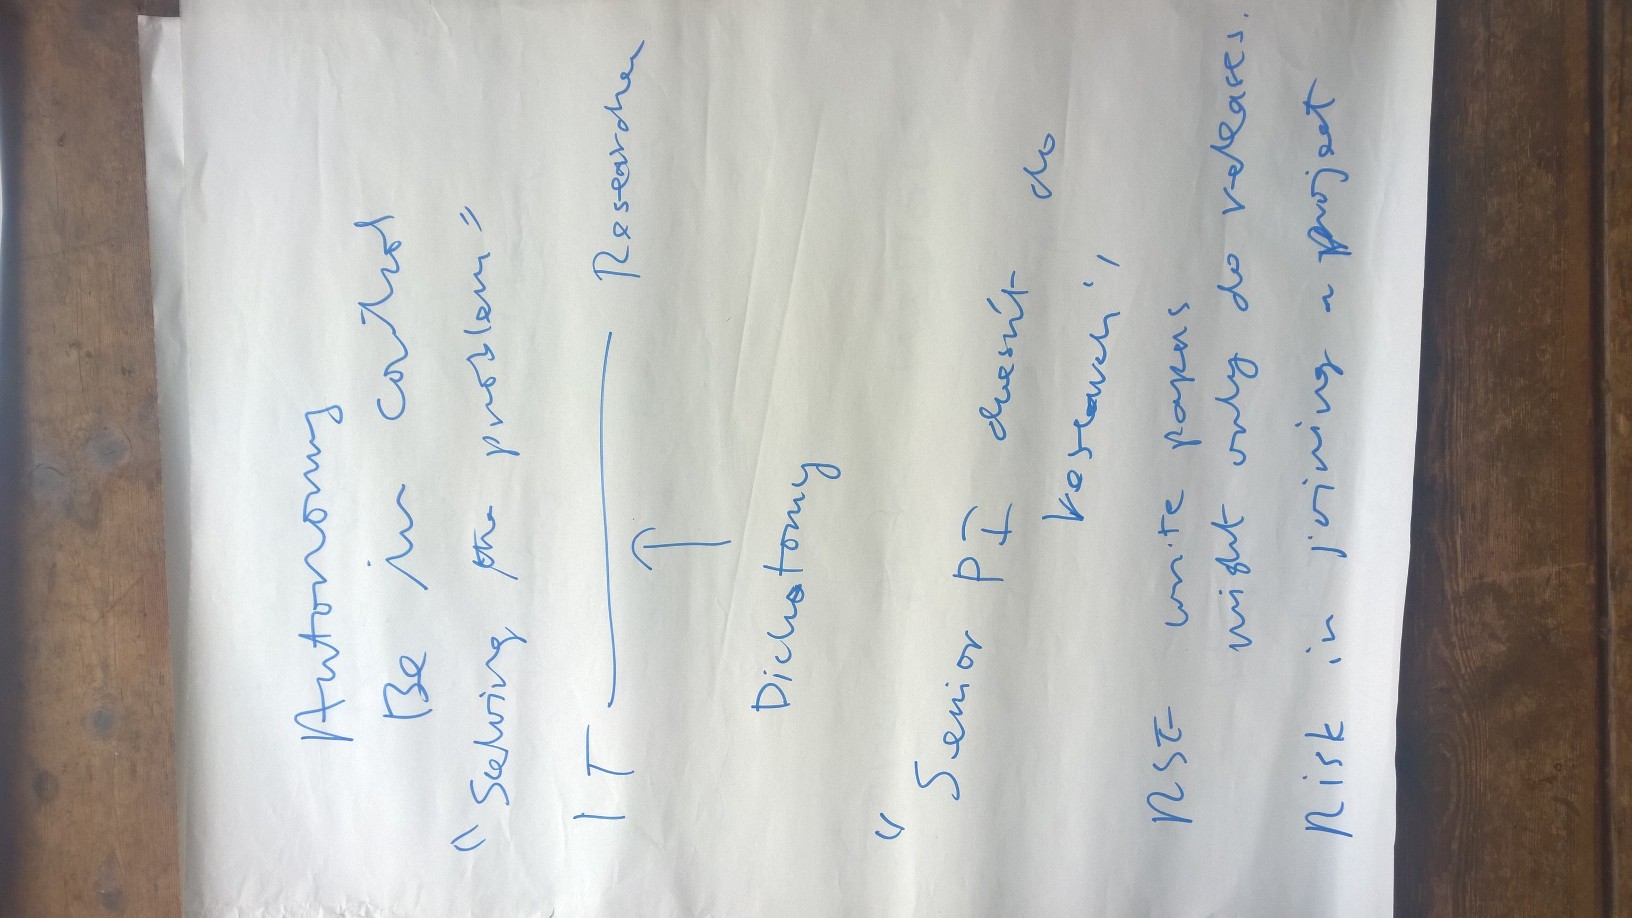 Autonomy
Be in control
"Solving the problem"
IT — Researcher
↑
Dichotomy
"Senior PI doesn't do
research",
RSE write papers
might only do releases.
Risk in joining a project